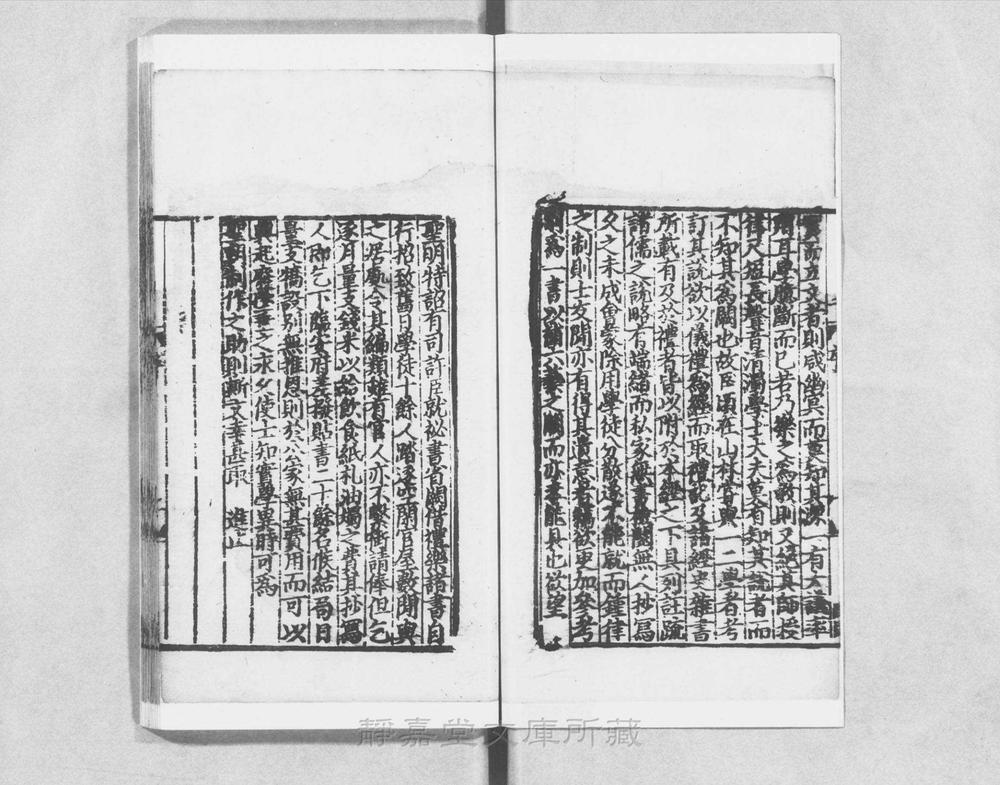 而立文者則咸幽冥而莫知其源一有大議率
用耳學臆斷而已若乃樂之為教則又絕其師授
律尺短長聲音清濁學士大夫莫有知其說者而
不知其為闕也故臣頃在山林嘗與一二學者考
訂其說欲以儀禮為經而取禮記及諸經史雜書
所載有及於禮者皆以附於本經之下具列註疏
諸儒之說略有端緒而私家無書檢閱無人抄寫
久之未成會蒙除用學徒分散遂不能就而鍾律
之制則士友間亦有得其遺意者竊欲更加參考
別為一書以補六藝之闕而亦未能具也欲望
聖明特詔有司許臣就祕書省關借禮樂諸書自
行招致舊日學徒十餘人踏逐空閑官屋數間與
之居處令其編類雖有官人亦不繫銜請俸但乞
逐月量支錢米以給飲食紙札油燭之費其抄寫
人即乞下臨安府差撥貼書二十餘名候結局日
量支犒設別無推恩則於公家無甚費用而可以
興起廢墜垂之永久使士知實學異時可為
聖朝制作之助則斯文幸甚取 進止
靜嘉堂文庫所藏